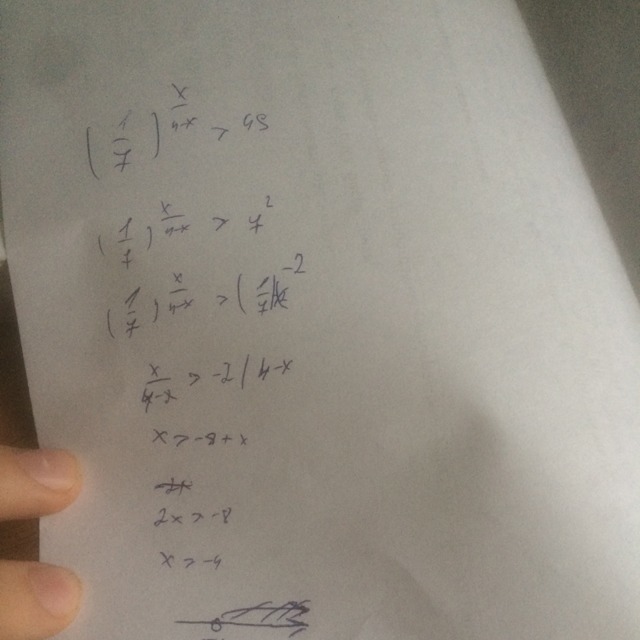 (1/7)^(x/(4-x)) > 49
(1/7)^(x/(4-x)) > 7^2
(1/7)^(x/(4-x)) > (1/7)^-2
x/(4-x) > -2 | 4-x
x > -8 + x
2x > -8
x > -4